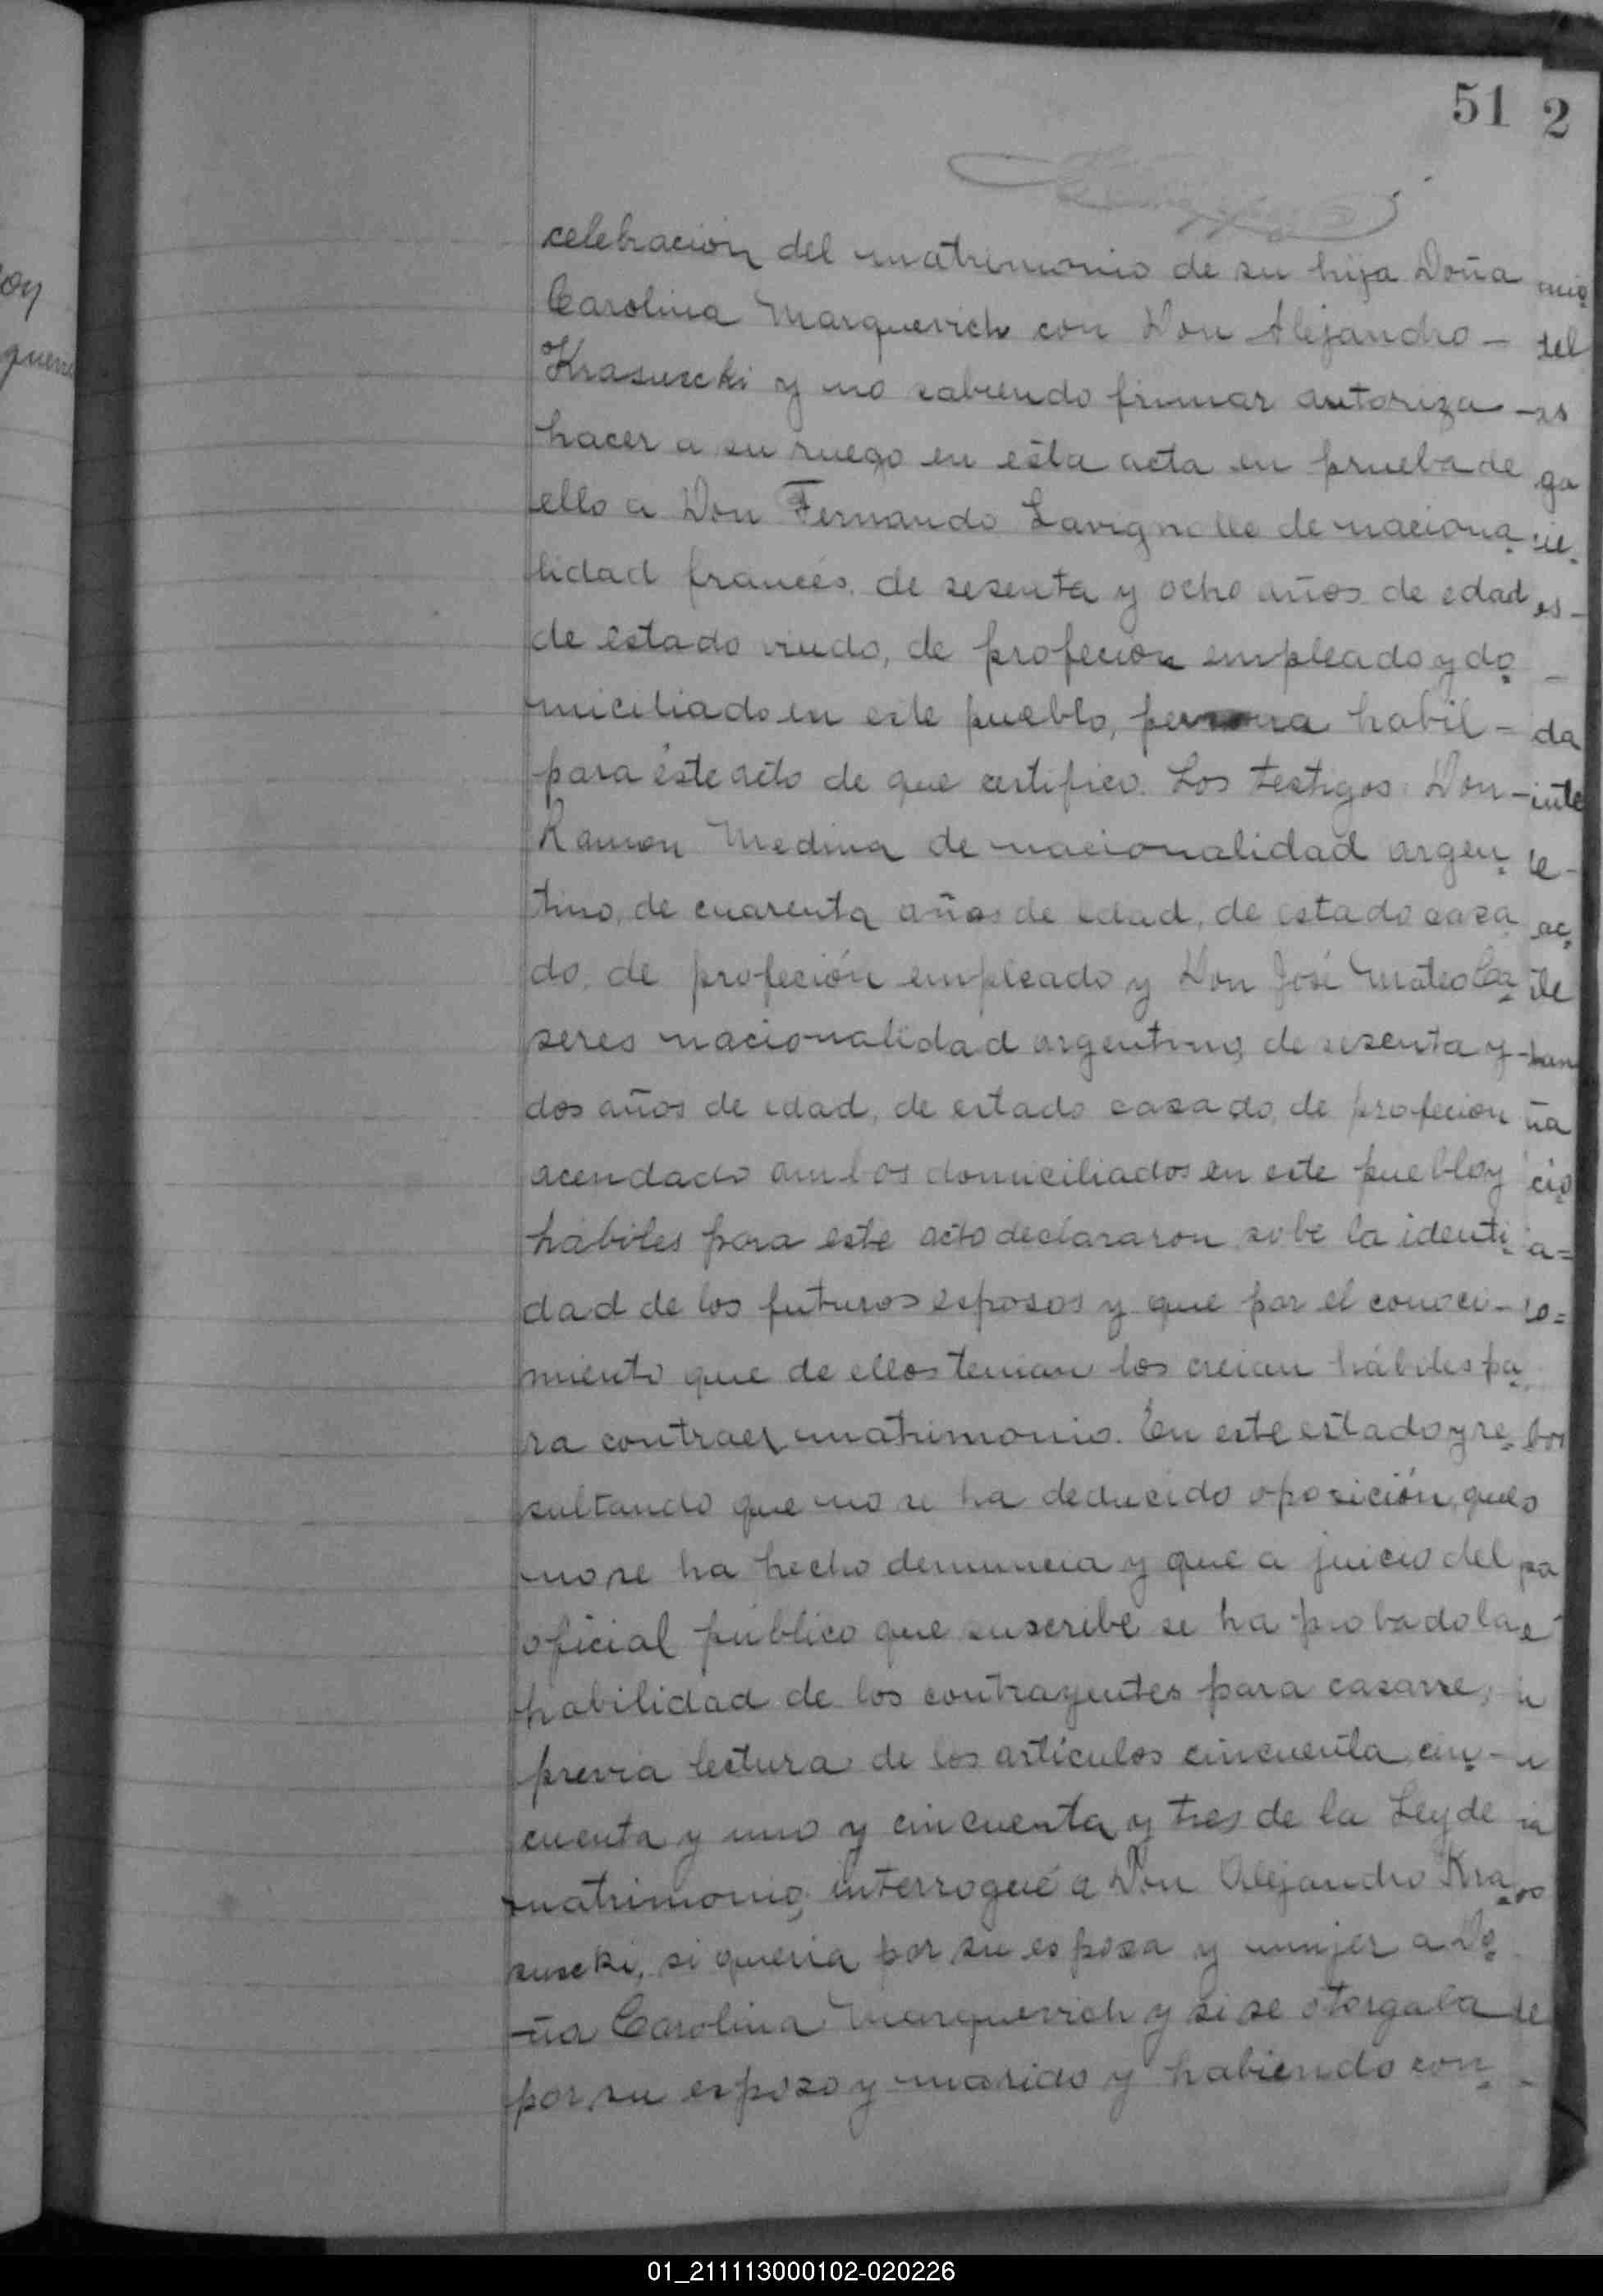 51 2
celebracion del matrimonio de su hija Doña
Carolina Marquevich con Don Alejandro -
Krasuscki y no sabiendo firmar autoriza
hacer a su ruego en esta acta en prueba de
ello a Don Fernando Lavignolle de naciona
lidad francés, de sesenta y ocho años de edad
de estado viudo, de profecion empleado y do
miciliado en este pueblo, persona habil -
para éste acto de que certifico. Los testigos Don
Ramon Medina de nacionalidad argen
tino, de cuarenta años de edad, de estado casa
do, de profeción empleado y Don José Mateo Ca
seres nacionalidad argentino, de sesenta y
dos años de edad, de estado casado, de profecion
acendado ambos domiciliados en este pueblo y
hábiles para este acto declararon sobe la identi
dad de los futuros esposos y que por el conoci-
miento que de ellos tenian los creian hábiles pa
ra contraer matrimonio. En este estado y re
sultando que no se ha deducido oposición, que
no se ha hecho denuncia y que a juicio del
oficial público que suscribe se ha probado la
habilidad de los contrayentes para casarse,
previa lectura de los artículos cincuenta, cin
cuenta y uno y cincuenta y tres de la Ley de
matrimonio, interrogué a Don Alejandro Kra
suscki, si queria por su esposa y mujer a Do
ña Carolina Marquevich y si se otorgaba
por su esposo y marido y habiendo con
01_211113000102-020226